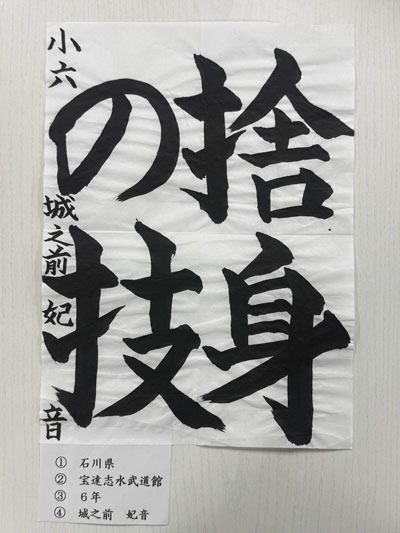 捨身
の技
小六 城之前 妃音
① 石川県
② 宝達志水武道館
③ 6年
④ 城之前 妃音